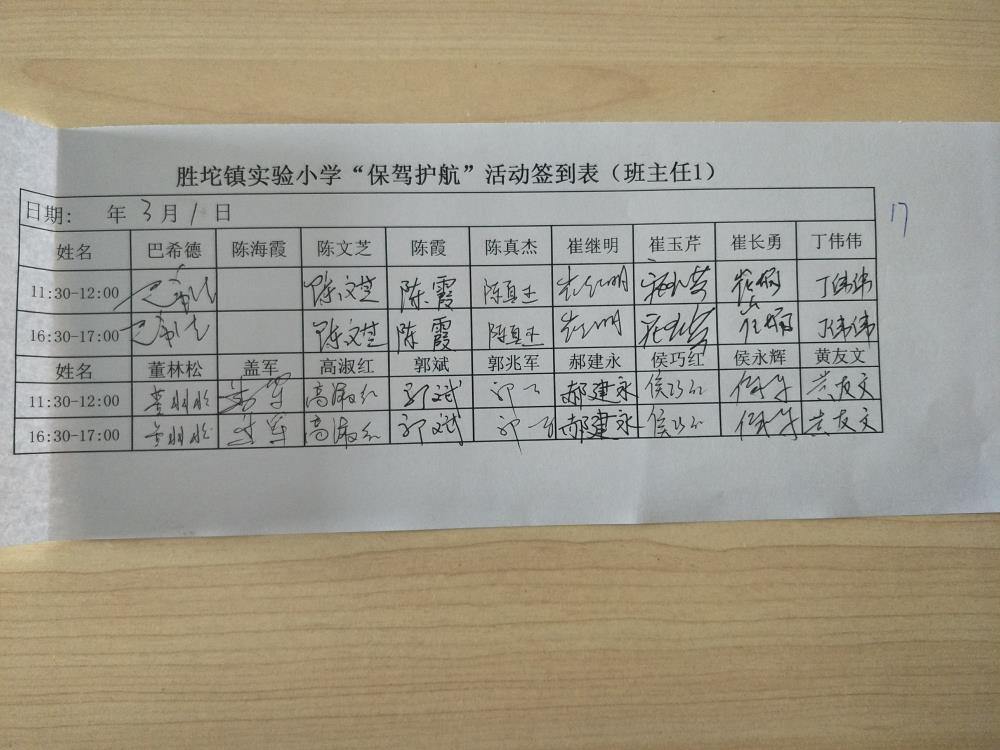 胜坨镇实验小学“保驾护航”活动签到表（班主任1）
日期: 年 3 月 1 日
17
姓名 巴希德 陈海霞 陈文芝 陈霞 陈真杰 崔继明 崔玉芹 崔长勇 丁伟伟
11:30-12:00 巴希德 陈文芝 陈霞 陈真杰 崔继明 丁伟伟
16:30-17:00 巴希德 陈文芝 陈霞 陈真杰 崔继明 丁伟伟
姓名 董林松 盖军 高淑红 郭斌 郭兆军 郝建永 侯巧红 侯永辉 黄友文
11:30-12:00 董林松 盖军 高淑红 郭斌 郝建永 侯巧红 黄友文
16:30-17:00 董林松 盖军 高淑红 郭斌 郝建永 侯巧红 黄友文